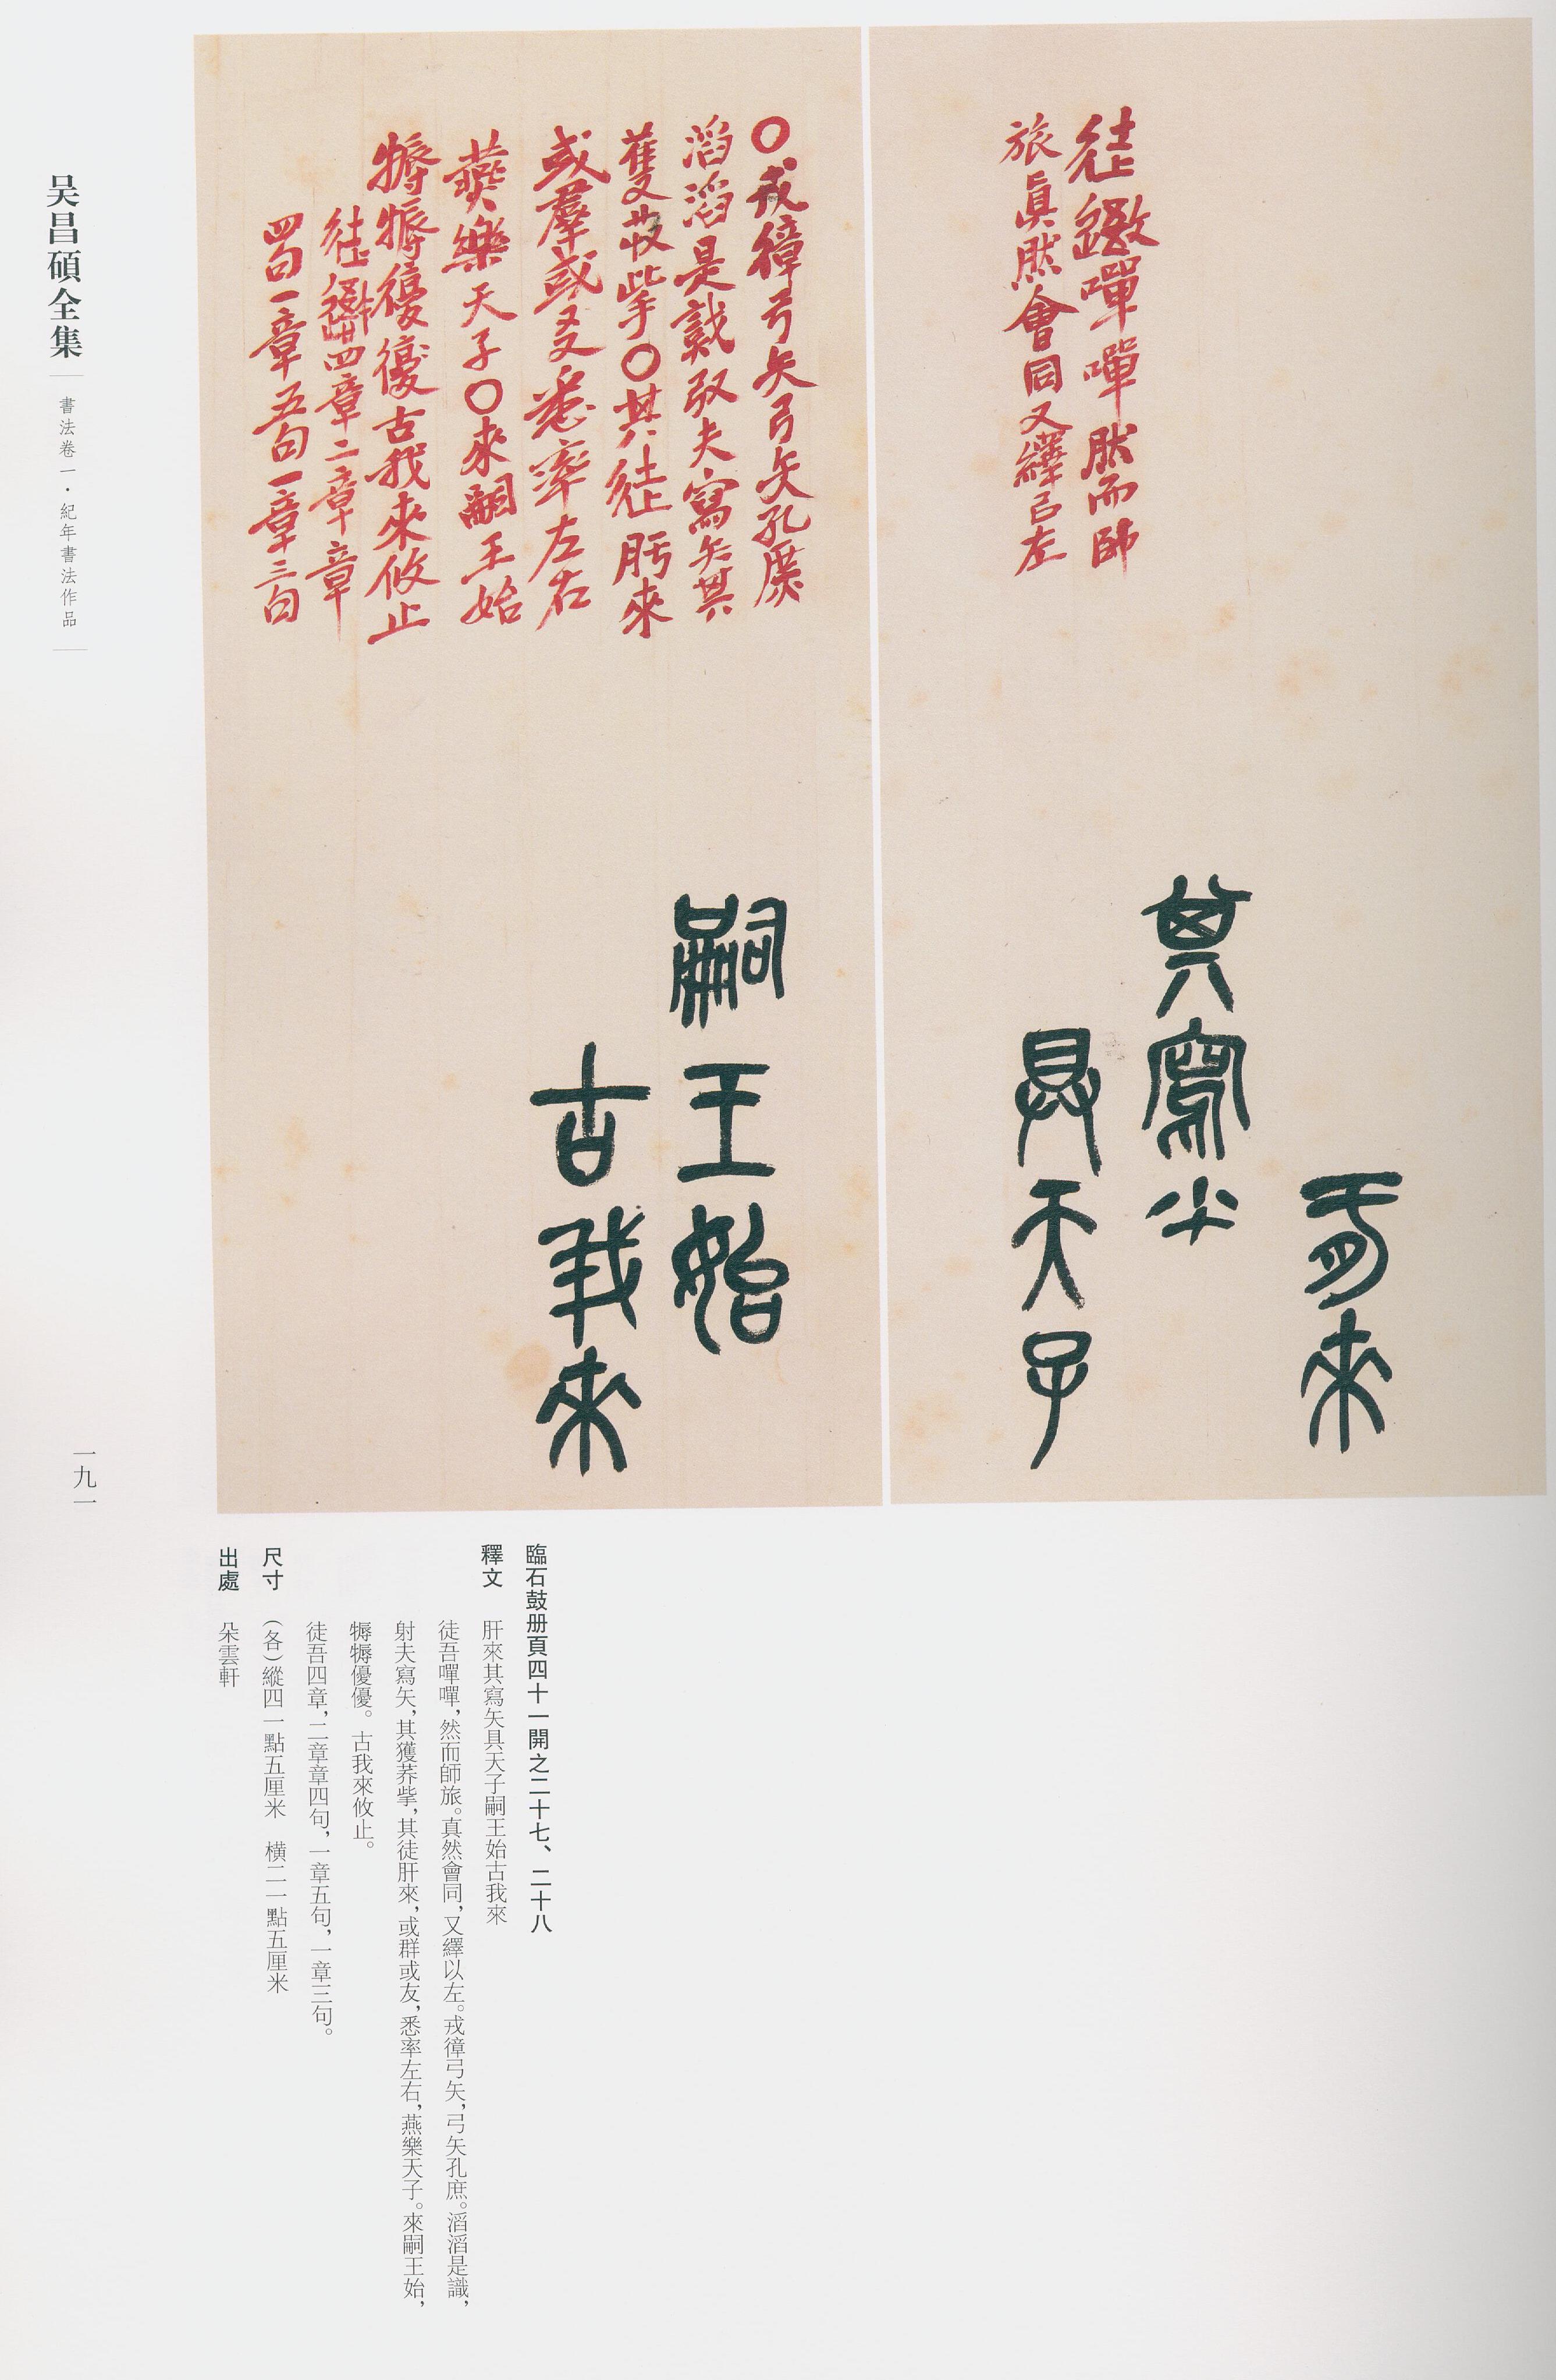 徒䢜嘽嘽肰而師
旅眞肰會同又繹㠯左
〇戎徫弓矢弓矢孔庶
滔滔是戠䠶夫寫矢其
隻茻㧘〇其徒肝來
或羣或友悉率左右
燕樂天子〇來嗣王始
㹇㹇優優古我來攸止
徒䢜四章二章章
四句一章五句一章三句
肝來
其寫矢
具天子
嗣王始
古我來
臨石鼓册頁四十一開之二十七、二十八
釋文 肝來其寫矢具天子嗣王始古我來
徒吾嘽嘽，然而師旅。真然會同，又繹以左。戎徫弓矢，弓矢孔庶。滔滔是識，
射夫寫矢，其獲莽㧘，其徒肝來，或群或友，悉率左右，燕樂天子。來嗣王始，
優優。古我來攸止。
徒吾四章，二章章四句，一章五句，一章三句。
尺寸 （各）縱四一點五厘米 横二一點五厘米
出處 朵雲軒
吴昌碩全集
書法卷一·紀年書法作品
一九一